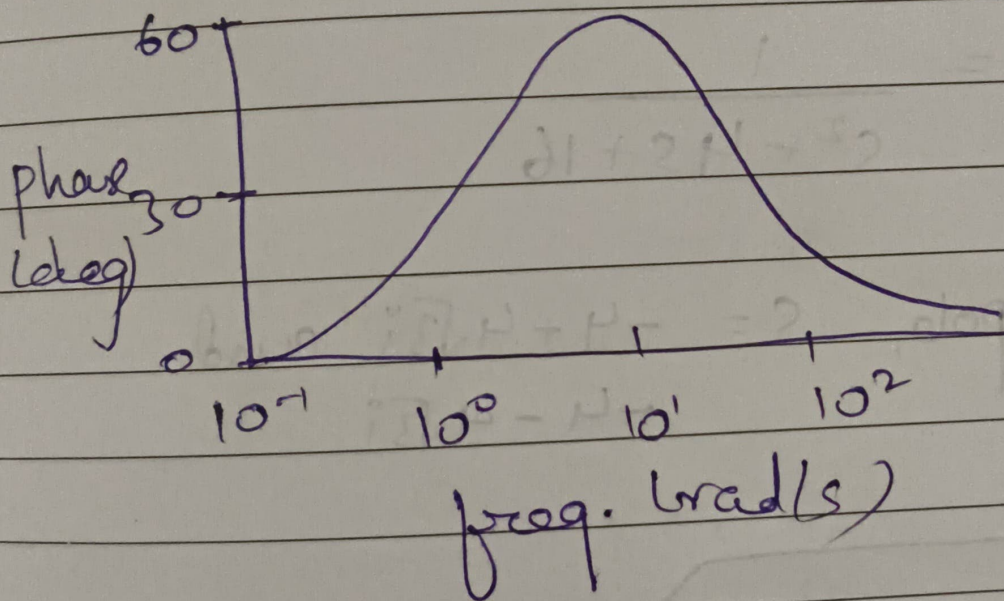 60
phase
30
(deg)
0
10⁻¹ 10⁰ 10¹ 10²
freq. (rad/s)